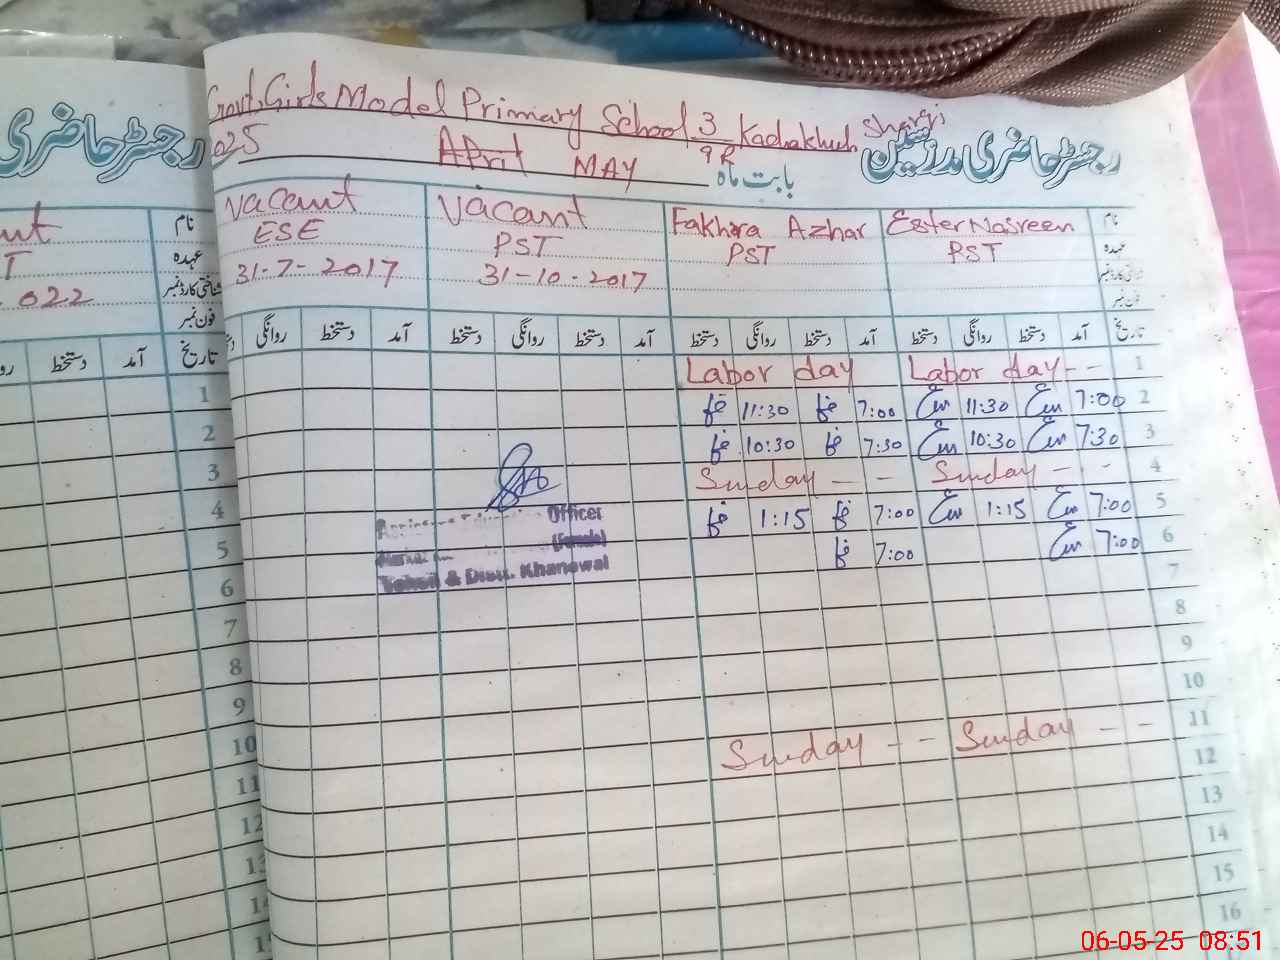 Govt. Girls Model Primary School 3/9R Kachakhuh Sharqi
رجسٹر حاضری مدرسین
رجسٹر حاضری
2025 April MAY بابت ماہ
Vacant Vacant Fakhra Azhar Ester Nasreen نام
ESE PST PST PST عہدہ
31-7-2017 31-10-2017 شناختی کارڈ نمبر
فون نمبر
نام
عہدہ
022 شناختی کارڈ نمبر
فون نمبر
روانگی دستخط آمد دستخط روانگی دستخط آمد دستخط روانگی دستخط آمد دستخط روانگی دستخط آمد تاریخ
دستخط آمد تاریخ
Labor day Labor day - - 1
11:30 7:00 11:30 7:00 2
10:30 7:30 10:30 7:30 3
Sunday - - Sunday - - 4
1:15 7:00 1:15 7:00 5
7:00 7:00 6
7
8
9
10
Sunday - - Sunday - - 11
12
13
14
15
16
Officer
(Female)
Tehsil & Distt. Khanewal
1
2
3
4
5
6
7
8
9
10
11
12
13
14
06-05-25 08:51